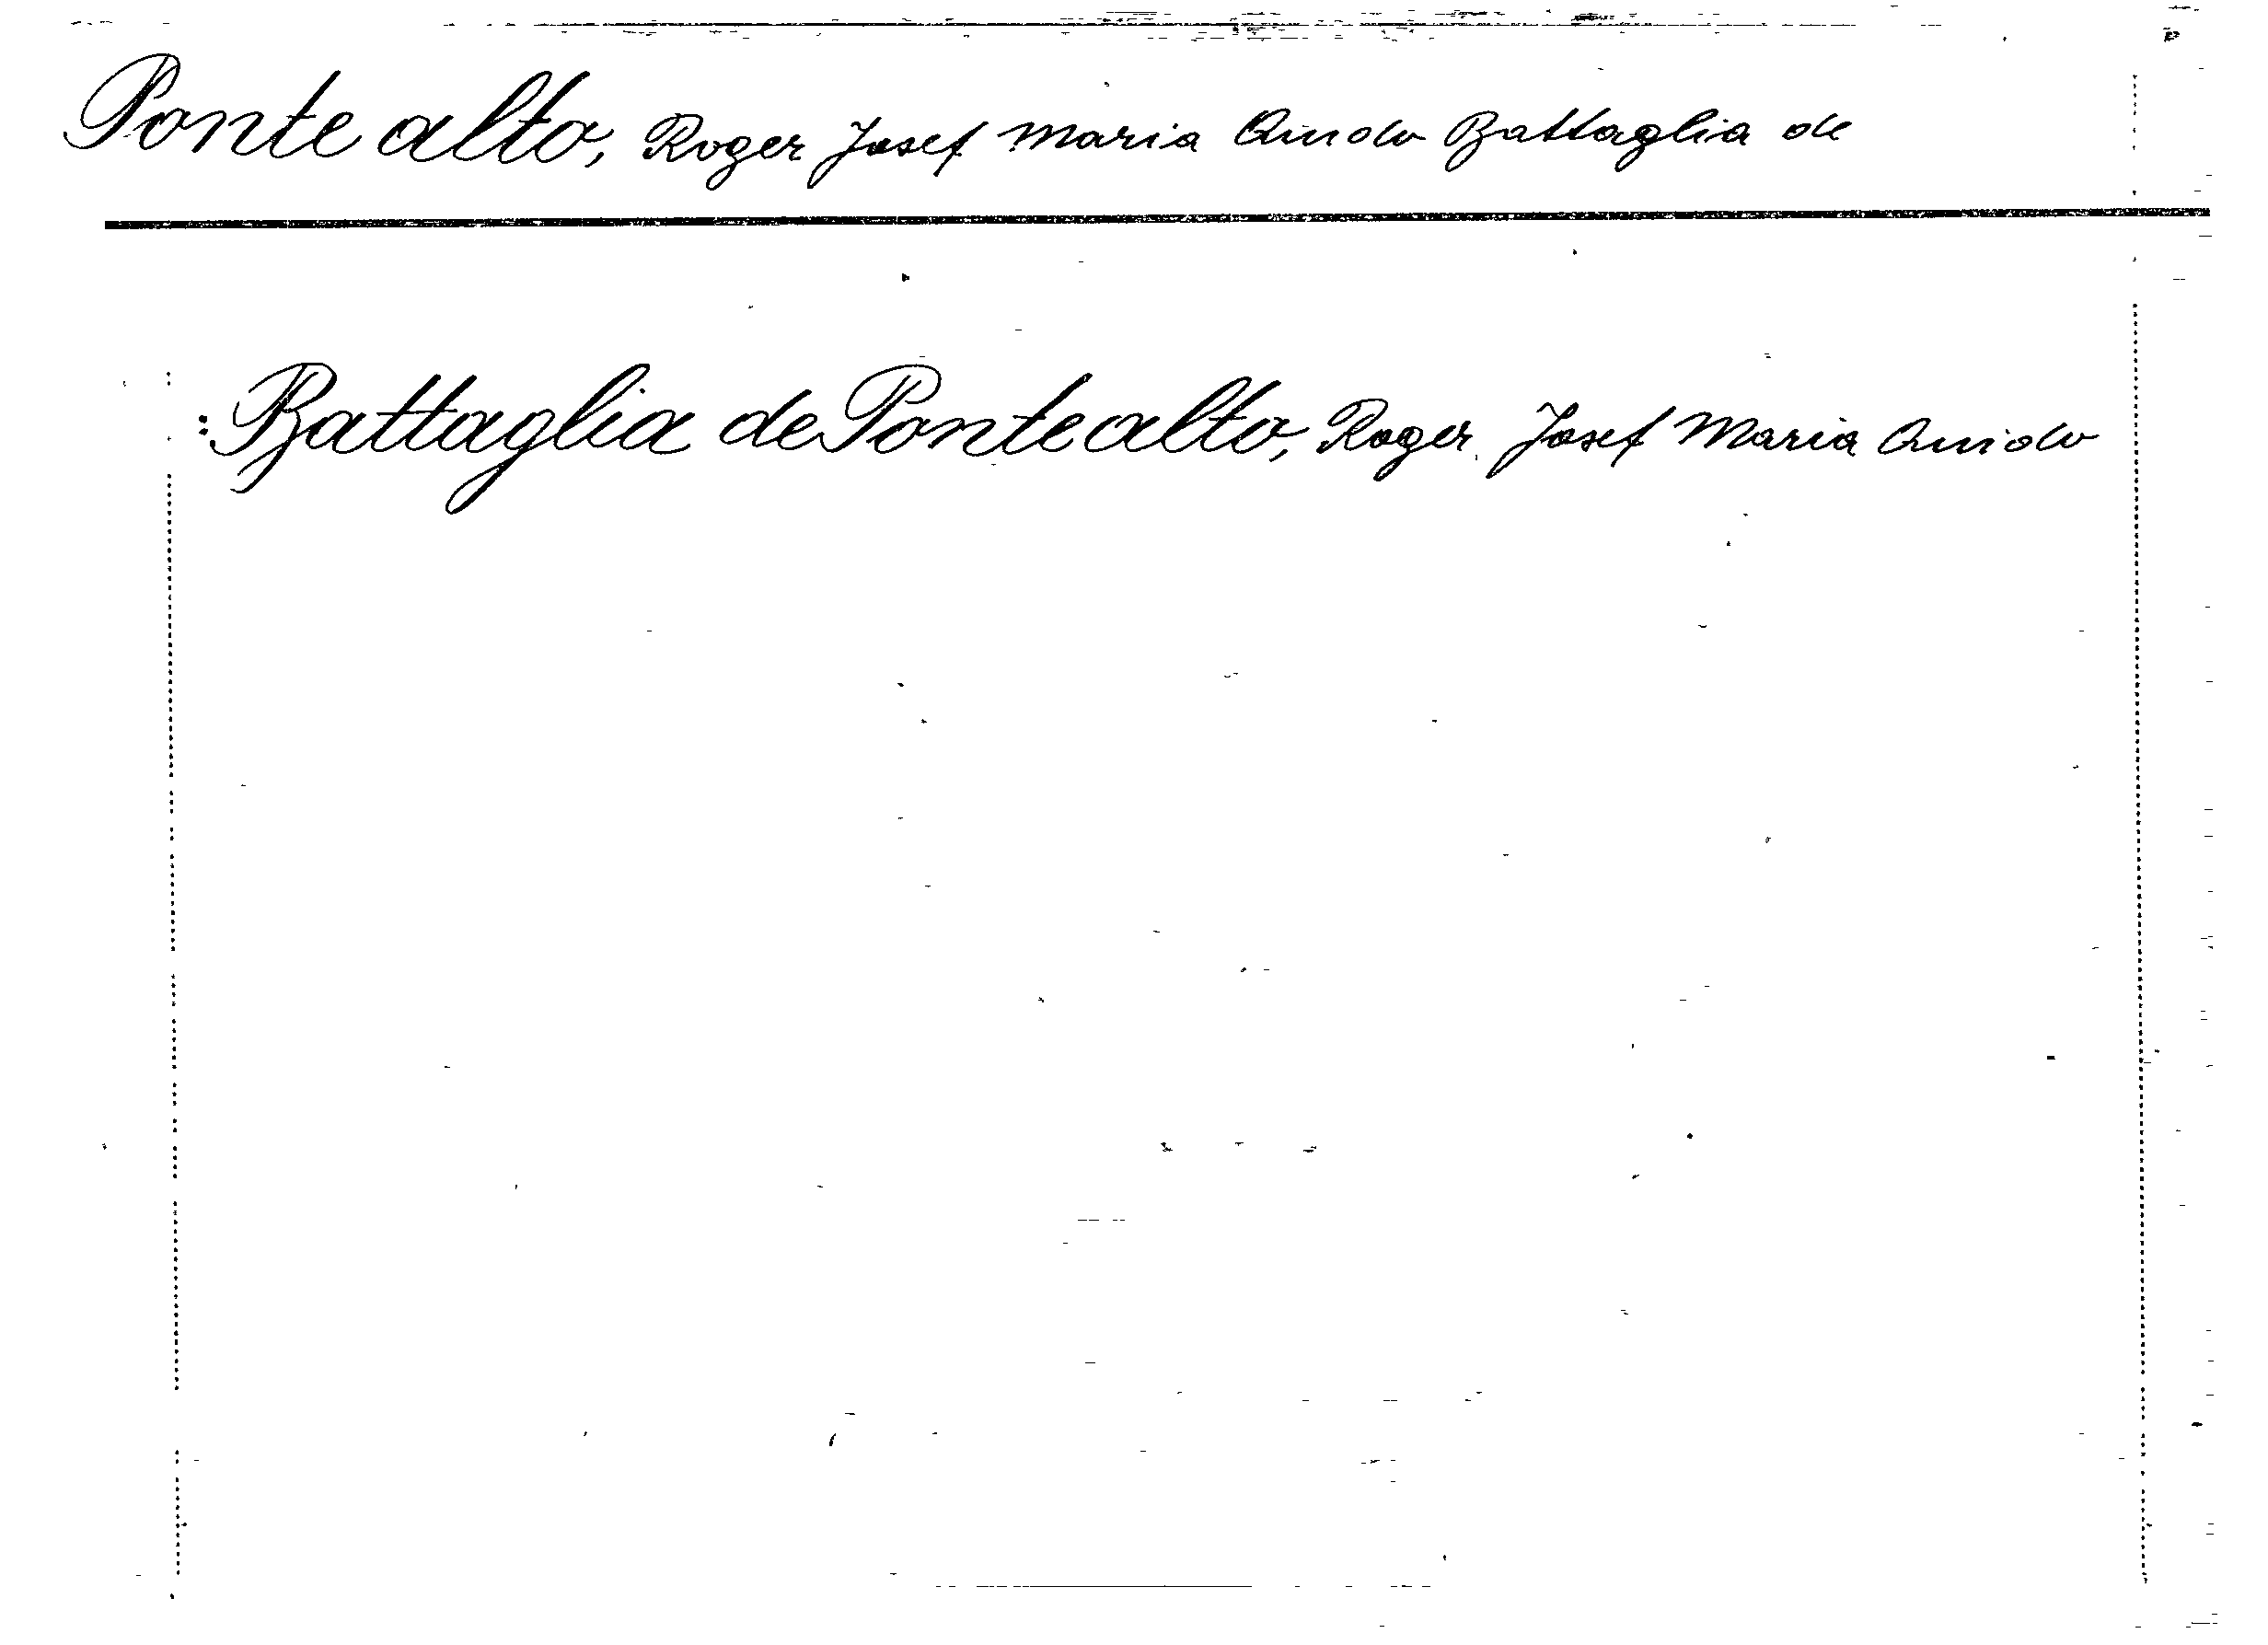 Ponte alto, Roger Josef Maria Quido Battaglia de
: Battaglia de Ponte alto, Roger Josef Maria Quido